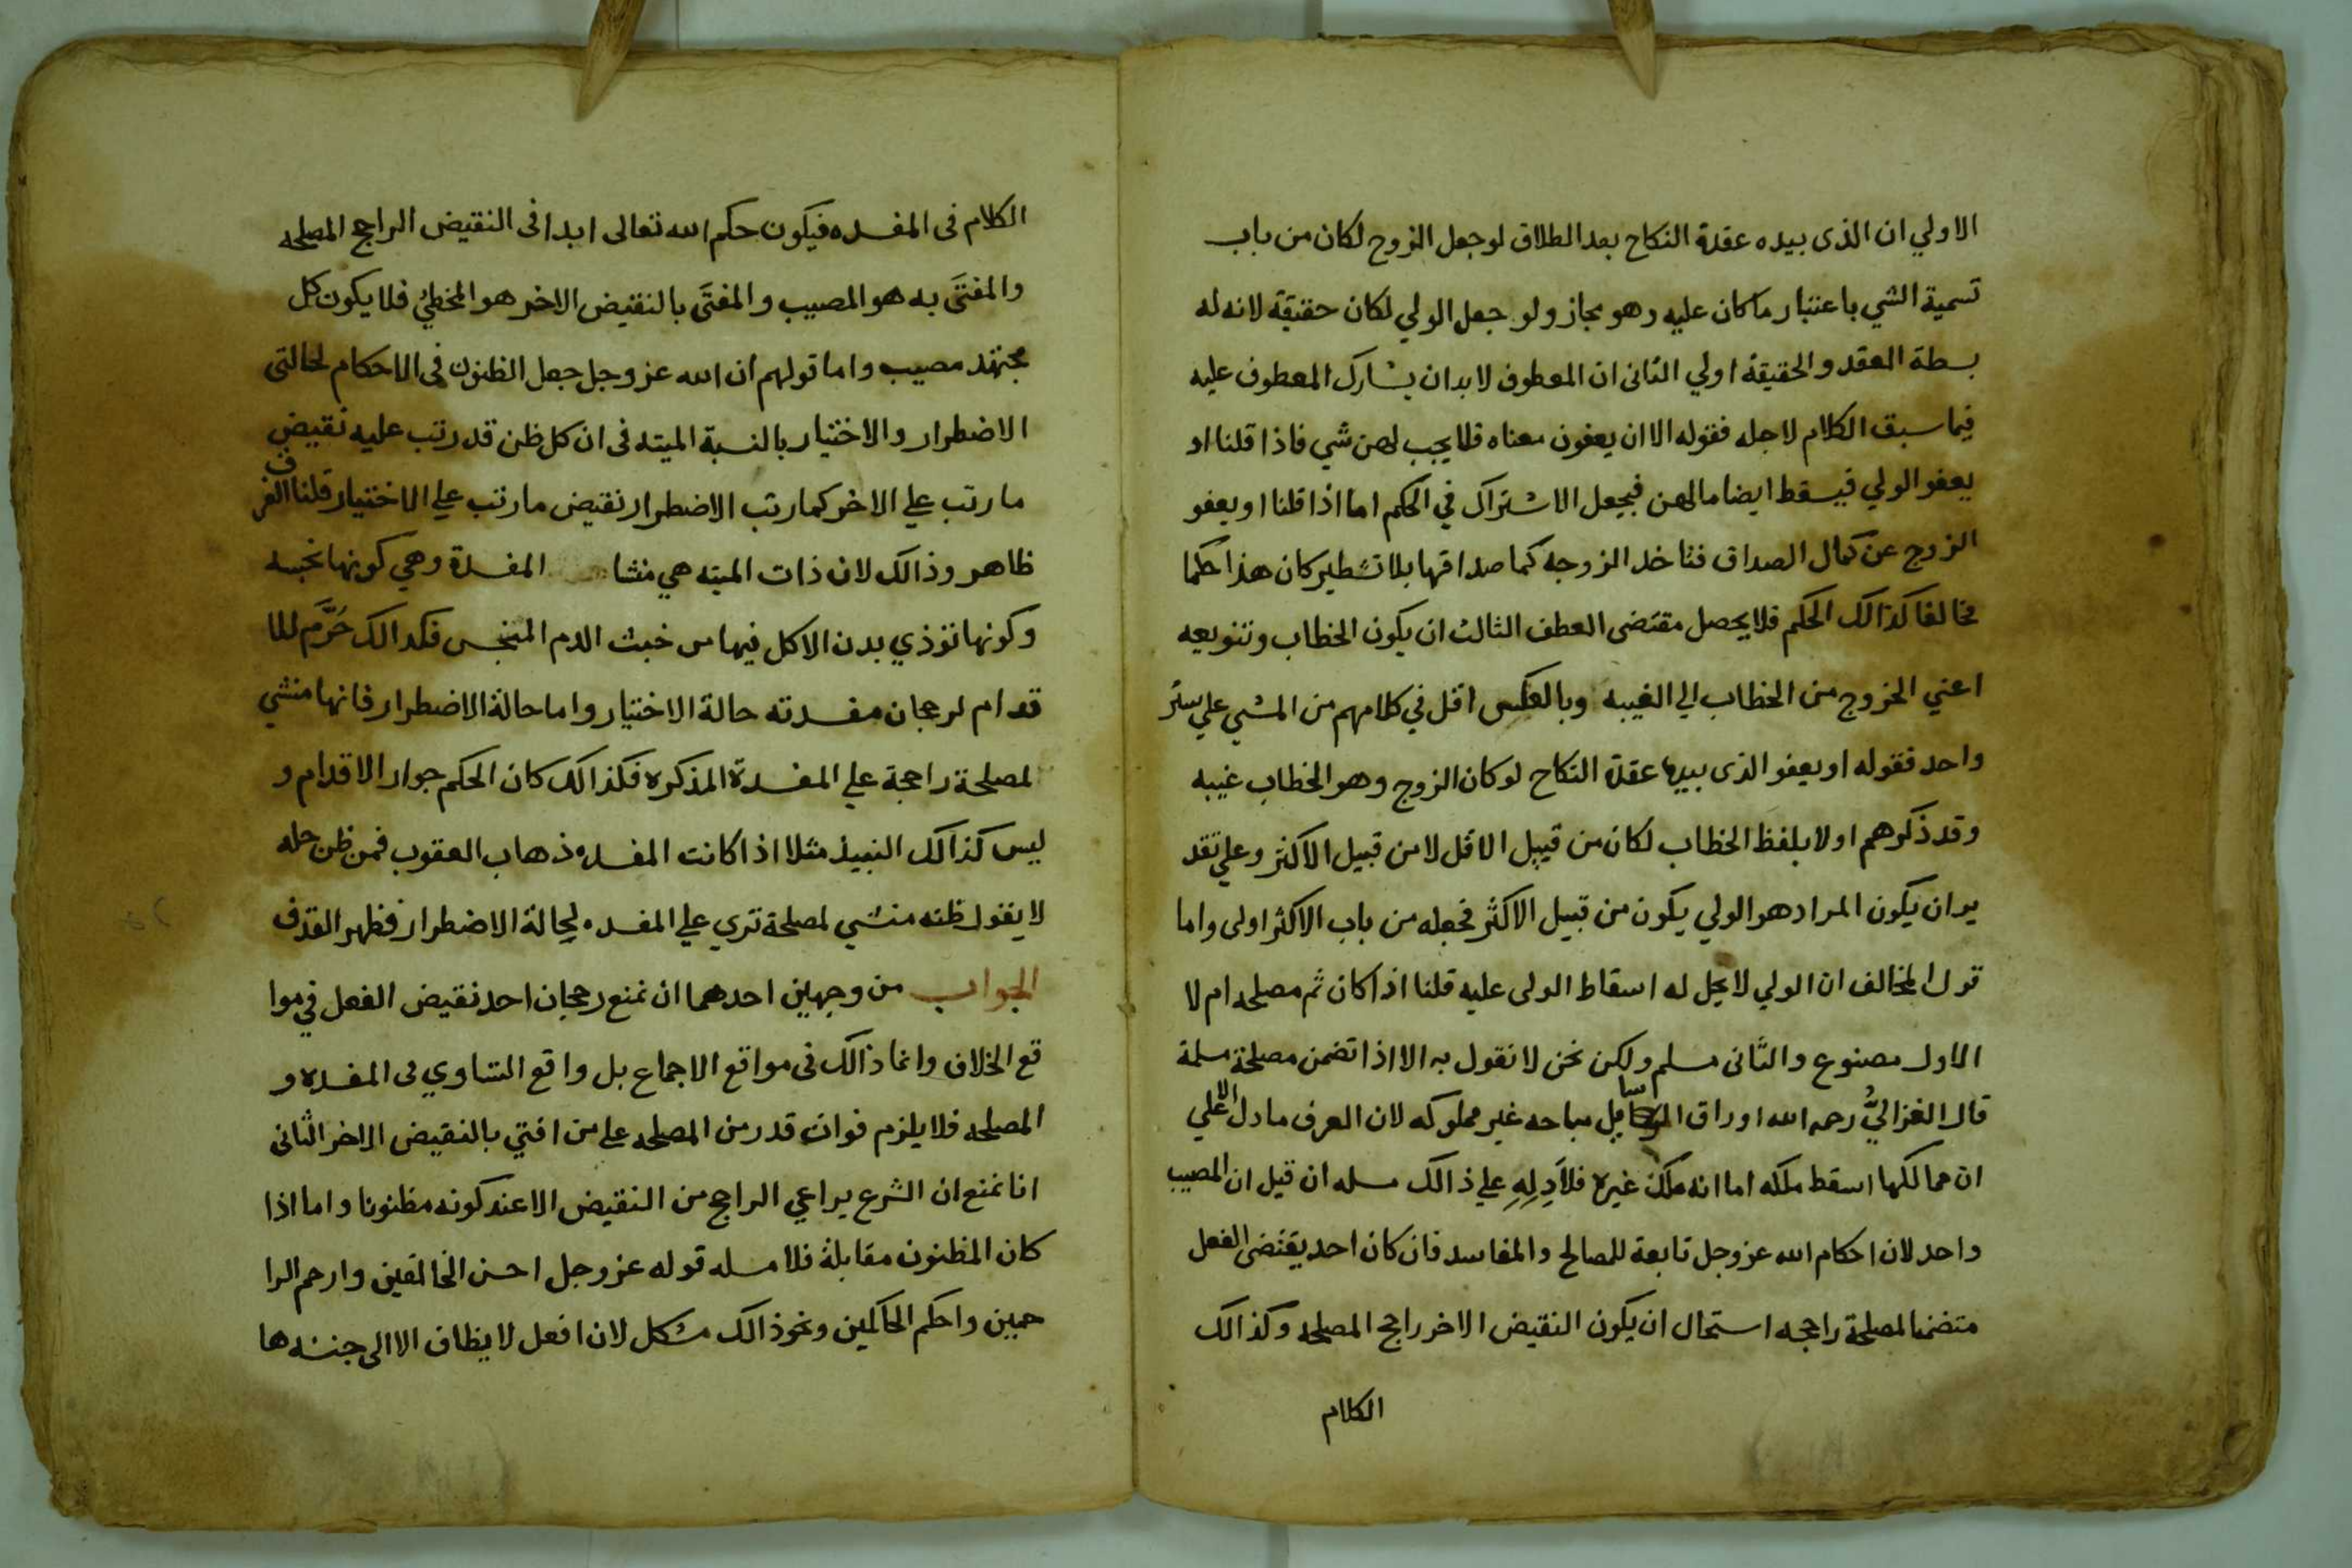 الاولي ان الذى بيده عقدة النكاح بعد الطلاق لو جعل الزوج لكان من باب
تسمية الشي باعتبار ما كان عليه وهو مجاز ولو جعل الولي لكان حقيقة لانه له
بسطة العقد والحقيقة اولي الثانى ان المعطوف لابد ان يشارك المعطوف عليه
فيما سبق الكلام لاجله فقوله الا ان يعفون معناه فلا يجب لهن شي فاذا قلنا او
يعفو الولي فيسقط ايضا مالهن فيجعل الاشتراك في الحكم اما اذا قلنا او يعفو
الزوج عن كمال الصداق فتاخد الزوجه كما صداقها بلا تشطير كان هذا حكما
مخالفا كذالك الحكم فلا يحصل مقتضى العطف الثالث ان يكون الخطاب وتنويعه
اعني الخروج من الخطاب الي الغيبه وبالعكس اقل في كلامهم من المشي علي ستر
واحد فقوله او يعفو الذى بيدها عقدة النكاح لو كان الزوج وهو الخطاب غيبه
وقد ذكروهم اولا بلفظ الخطاب لكان من قبيل الاقل لا من قبيل الاكثر وعلي تقد
ير ان يكون المراد هو الولي يكون من قبيل الاكثر فجعله من باب الاكثر اولى واما
قول المخالف ان الولي لا يحل له اسقاط الولى عليه قلنا اذا كان ثم مصلحه ام لا
الاول مصنوع والثانى مسلم ولكن نحن لا نقول به الا اذا تضمن مصلحة مسلمة
قال الغزاليُّ رحمه الله اوراق الرسايل مباحه غير مملوكه لان العرف مادل الا علي
ان ممالكها اسقط ملكه اما انه ملك غيره فلا دِلِهِ علي ذالك مسله ان قيل ان المصيب
واحد لان احكام الله عز وجل تابعة للمصالح والمفاسد فان كان احد يقتضى الفعل
متضمنا لمصلحة راجحه استحال ان يكون النقيض الاخر راجح المصلحه وكذالك
الكلام
الكلام فى المفسده فيكون حكم الله تعالى ابدا فى النقيض الراجح المصلحه
والمفتَى به هو المصيب والمفتَى بالنقيض الاخر هو المخطيُ فلا يكون كل
مجتهد مصيب واما قولهم ان الله عز وجل جعل الظنون فى الاحكام لحالتى
الاضطرار والاختيار بالنسبة الميته فى ان كل ظن قد رتب عليه نقيض
ما رتب علي الاخر كما رتب الاضطرار نقيض ما رتب علي الاختيار قلنا الفرق
ظاهر وذالك لان ذات الميته هي منشا المفسدة وهي كونها نجسه
وكونها توذي بدن الاكل فيها من خبث الدم المنجس فكدالك حَرَّم للا
قدام لرجحان مفسدته حالة الاختيار واما حالة الاضطرار فانها منشي
لمصلحة راجحة علي المفسدة المذكره فكذالك كان الحكم جوار الاقدام و
ليس كذالك النبيذ مثلا اذا كانت المفسده ذهاب العقوب فمن ظن حله
لا يقول ظنه منشي لمصلحة تري علي المفسده لحالة الاضطرار فظهر القدف
الجواب من وجهين احدهما ان نمنع رجحان احد نقيض الفعل في موا
قع الخلاف وانما ذالك فى مواقع الاجماع بل واقع التساوي فى المفسده و
المصلحه فلا يلزم فوات قدر من المصلحه علي من افتي بالنقيض الاخر الثانى
انا نمنع ان الشرع يراعي الراجح من النقيض الا عند كونه مظنونا واما اذا
كان المظنون مقابلة فلا مسله قوله عز وجل احسن الخالقين وارحم الرا
حمين واحكم الحاكمين ونحوذالك مشكل لان افعل لا يظاف الا الى جنسه ها